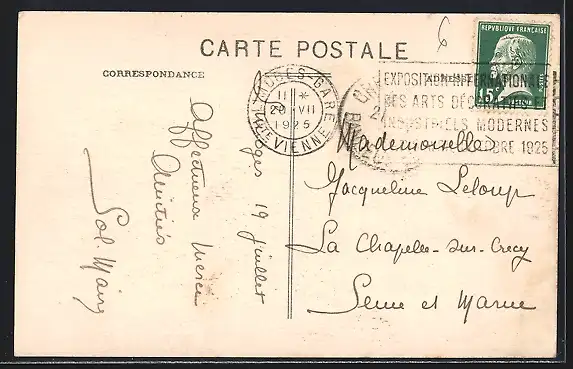 CARTE POSTALE
CORRESPONDANCE
REPUBLIQUE FRANÇAISE
15c
LIMOGES-GARE
11 *
20 -VII
1925
HTE VIENNE
EXPOSITION INTERNATIONALE
DES ARTS DÉCORATIFS ET
INDUSTRIELS MODERNES
1925
Limoges 19 juillet
Affectueux merci
Amitiés
Mademoiselle
Jacqueline Leloup
La Chapelle-sur-Crecy
Seine et Marne